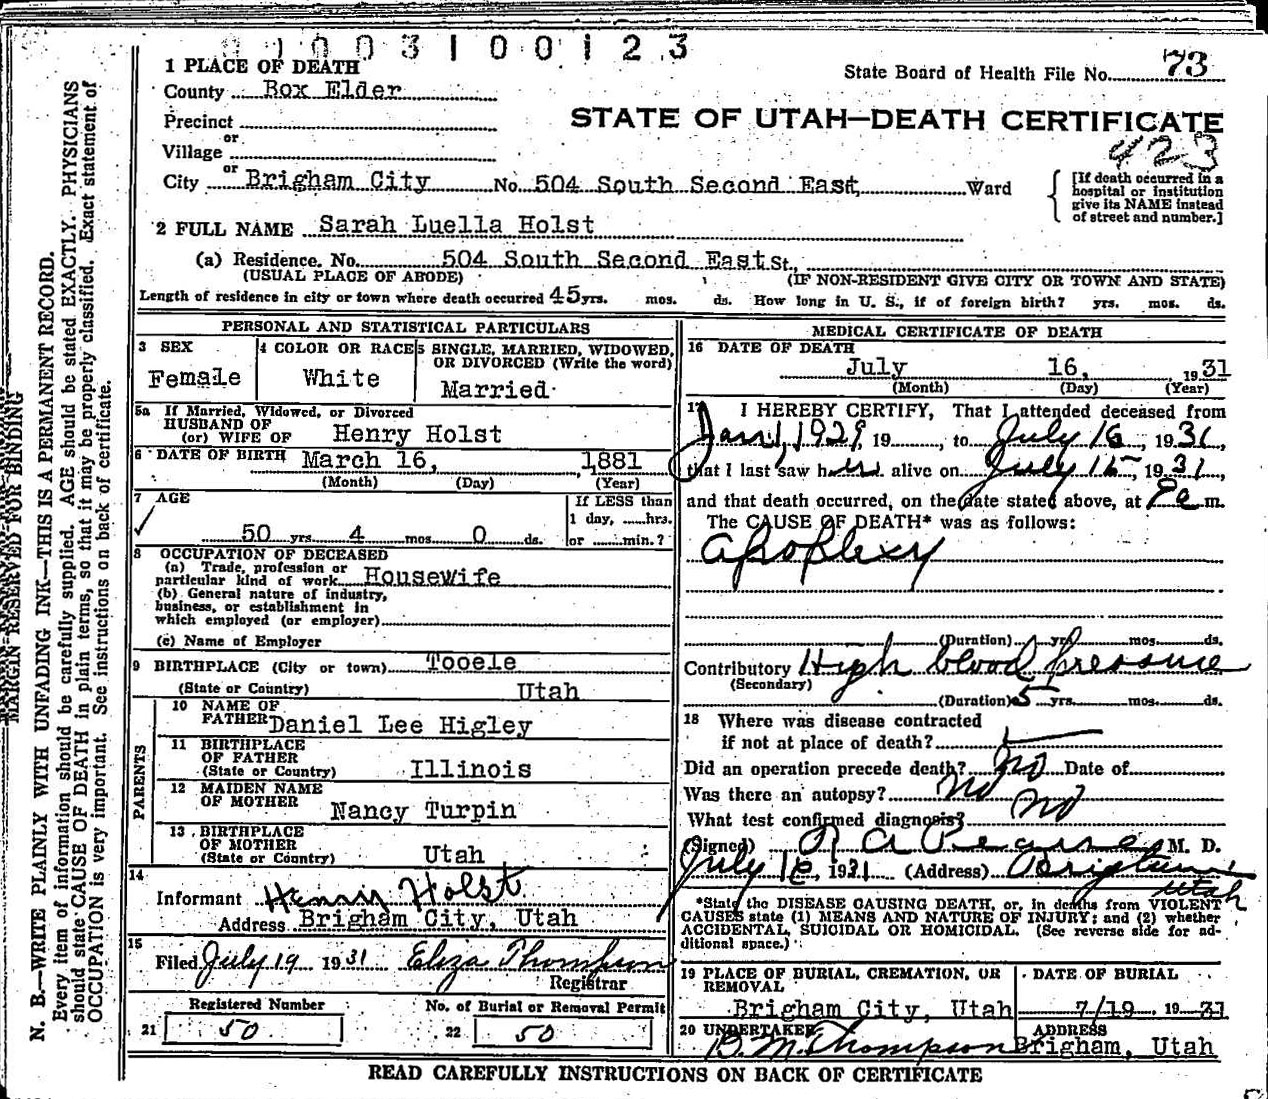 01003100123
1 PLACE OF DEATH
State Board of Health File No. 73
County Box Elder
Precinct
STATE OF UTAH—DEATH CERTIFICATE
or
Village
423
or
City Brigham City No. 504 South Second East, Ward
[If death occurred in a
hospital or institution
give its NAME instead
of street and number.]
2 FULL NAME Sarah Luella Holst
(a) Residence. No. 504 South Second East St.,
(USUAL PLACE OF ABODE) (IF NON-RESIDENT GIVE CITY OR TOWN AND STATE)
Length of residence in city or town where death occurred 45 yrs. mos. ds. How long in U. S., if of foreign birth? yrs. mos. ds.
PERSONAL AND STATISTICAL PARTICULARS
3 SEX
Female
4 COLOR OR RACE
White
5 SINGLE, MARRIED, WIDOWED,
OR DIVORCED (Write the word)
Married
5a If Married, Widowed, or Divorced
HUSBAND OF
(or) WIFE OF Henry Holst
6 DATE OF BIRTH March 16, 1881
(Month) (Day) (Year)
7 AGE
50 yrs. 4 mos. 0 ds.
If LESS than
1 day, ......hrs.
or ......min.?
8 OCCUPATION OF DECEASED
(a) Trade, profession or
particular kind of work Housewife
(b) General nature of industry,
business, or establishment in
which employed (or employer)
(c) Name of Employer
9 BIRTHPLACE (City or town) Tooele
(State or Country) Utah
PARENTS
10 NAME OF
FATHER Daniel Lee Higley
11 BIRTHPLACE
OF FATHER
(State or Country) Illinois
12 MAIDEN NAME
OF MOTHER Nancy Turpin
13 BIRTHPLACE
OF MOTHER
(State or Country) Utah
14
Informant Henry Holst
Address Brigham City, Utah
15
Filed July 19 1931 Eliza Thompson
Registrar
Registered Number
21 50
No. of Burial or Removal Permit
22 50
MEDICAL CERTIFICATE OF DEATH
16 DATE OF DEATH
July 16, 1931
(Month) (Day) (Year)
17 I HEREBY CERTIFY, That I attended deceased from
Jan 1, 1929, 19 , to July 16, 1931,
that I last saw her alive on July 15, 1931,
and that death occurred, on the date stated above, at m.
The CAUSE OF DEATH* was as follows:
Apoplexy
(Duration) yrs. mos. ds.
Contributory High blood pressure
(Secondary)
(Duration) 5 yrs. mos. ds.
18 Where was disease contracted
if not at place of death?
Did an operation precede death? No Date of
Was there an autopsy? No
What test confirmed diagnosis? No
(Signed) R A Pearse M. D.
July 16, 1931 (Address) Brigham
Utah
*State the DISEASE CAUSING DEATH, or, in deaths from VIOLENT
CAUSES state (1) MEANS AND NATURE OF INJURY; and (2) whether
ACCIDENTAL, SUICIDAL OR HOMICIDAL. (See reverse side for ad-
ditional space.)
19 PLACE OF BURIAL, CREMATION, OR
REMOVAL
Brigham City, Utah
DATE OF BURIAL
7/19, 1931
20 UNDERTAKER
B. M. Thompson
ADDRESS
Brigham, Utah
READ CAREFULLY INSTRUCTIONS ON BACK OF CERTIFICATE
MARGIN RESERVED FOR BINDING
N. B.—WRITE PLAINLY WITH UNFADING INK—THIS IS A PERMANENT RECORD.
Every item of information should be carefully supplied. AGE should be stated EXACTLY. PHYSICIANS
should state CAUSE OF DEATH in plain terms, so that it may be properly classified. Exact statement of
OCCUPATION is very important. See instructions on back of certificate.